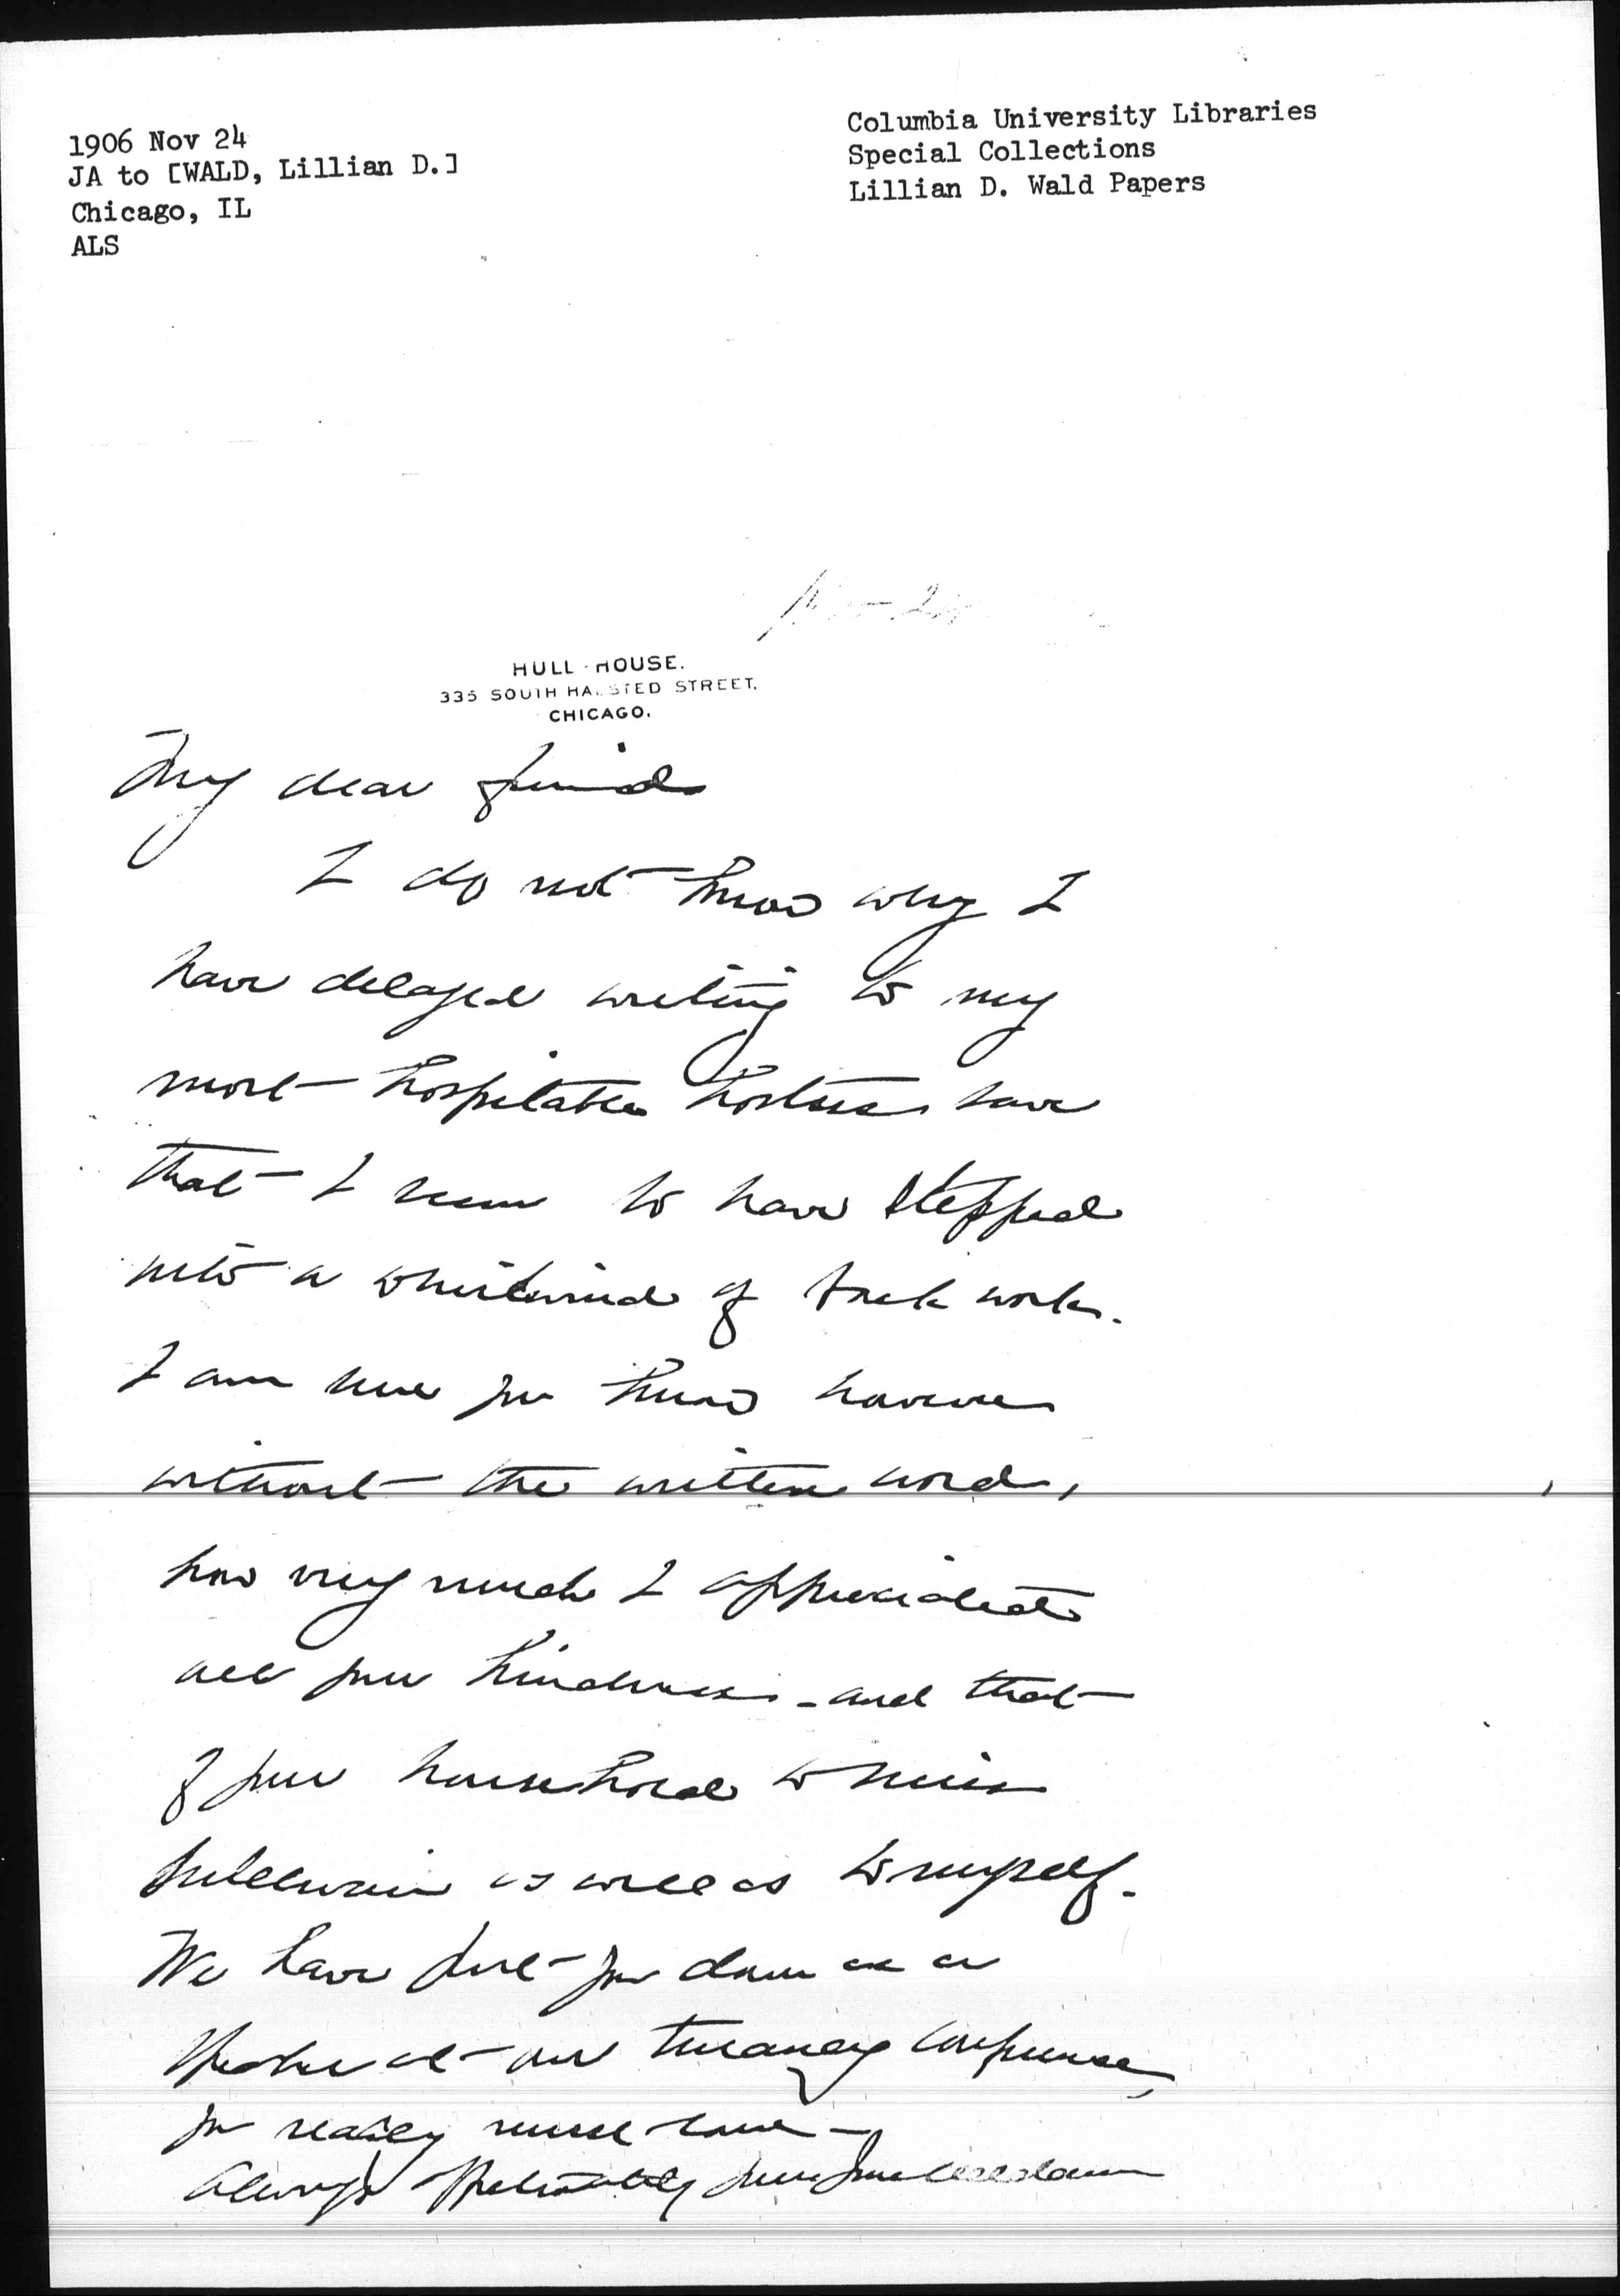 1906 Nov 24
JA to [WALD, Lillian D.]
Chicago, IL
ALS
Columbia University Libraries
Special Collections
Lillian D. Wald Papers
Nov 24
HULL-HOUSE.
335 SOUTH HALSTED STREET,
CHICAGO.
My dear friend
I do not know why I
have delayed writing to my
most hospitable hostess save
that I seem to have stepped
into a whirlwind of back work.
I am sure you know however
without the written word,
how very much I appreciated
all your kindness - and that
of your household to Miss
as well as to myself.
We have put you down as a
speaker at our truancy conference,
you really must come -
Always affectionately yours Jane Addams